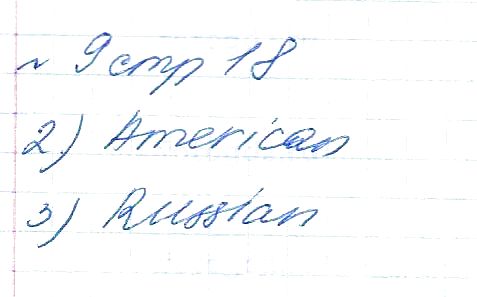 ~ 9 стр 18
2) American
3) Russian